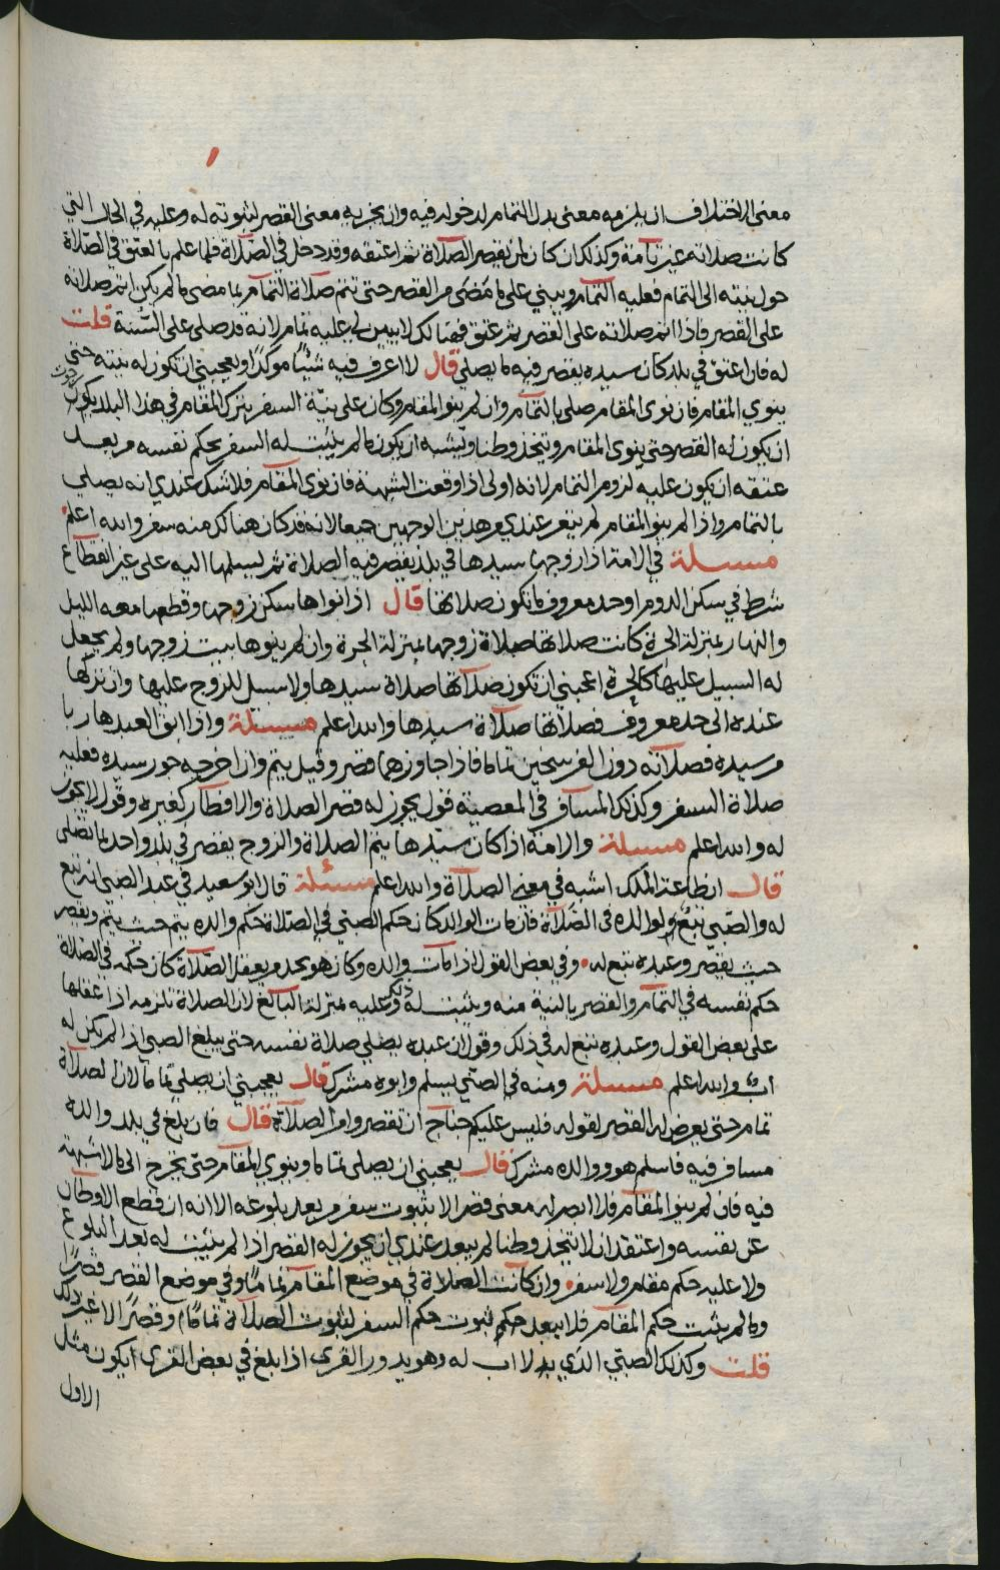 معنى الاختلاف ان يلزمه معنى بدل التمام لدخوله فيه وان يجزيه معنى القصر لثبوته له وعليه في الحال التي
كانت صلاته غير تامة وكذلك ان كان لمن يقصر الصلاة ثم اعتقه وقد دخل في الصلاة فلما علم بالعتق في الصلاة
حول نيته الى التمام فعليه التمام ويبني على ما مضى من القصر حتى تتم صلاة التمام بما مضى ما لم يكن اتم صلاته
على القصر فاذا اتم صلاته على القصر ثم عتق فهنالك لا يبين لي عليه تمام لانه قد صلى على السنة قلت
له فان اعتق في بلد كان سيده يقصر فيه ما يصلي قال لا اعرف فيه شيئا موكدا ويعجبني ان تكون له نيته حتى
ينوي المقام فان نوى المقام صلى بالتمام وان لم ينو المقام وكان على نية السفر بترك المقام في هذا البلد يكون
ان يكون له القصر حتى ينوي المقام ويتخذ وطنا ويشبه ان يكون ما لم يثبت له السفر بحكم نفسه من بعد
عتقه ان يكون عليه لزوم التمام لانه اولى اذا وقعت الشبهة فان نوى المقام فلا شك عندي انه يصلي
بالتمام واذا لم ينو المقام لم يتعر عندي من هذين الوجهين جميعا لانه قد كان هنالك منه سفر والله اعلم
مسئلة في الامة اذا زوجها سيدها في بلد يقصر فيه الصلاة ثم يسلمها اليه على غير انقطاع
شرط في سكن الدوم او حد معروف ما تكون صلاتها قال اذا نواها سكن زوجها وقطعها معه الليل
والنهار بمنزلة الحرة كانت صلاتها صلاة زوجها بمنزلة الحرة وان لم ينوها ببيت زوجها ولم يجعل
له السبيل عليها كالحرة اعجبني ان تكون صلاتها صلاة سيدها ولا سبيل للزوج عليها وان تركها
عنده الى حد معروف فصلاتها صلاة سيدها والله اعلم مسئلة واذا ابق العبد هاربا
من سيده فصلاته دون الفرسخين تماما فاذا جاوزهما قصر وقيل يتم وان اخرجه جور سيده فعليه
صلاة السفر وكذلك المسافر في المعصية قول يجوز له قصر الصلاة والافطار كغيره وقول لا يجوز
له والله اعلم مسئلة والامة اذا كان سيدها يتم الصلاة والزوج يقصر في بلد واحد ما تصلي
قال ان طاعة الملك اشبه في معنى الصلاة والله اعلم مسئلة قال ابو سعيد في عبد الصبي انه تبع
له والصبي تبع لوالده في الصلاة فان مات الوالد كان حكم الصبي في الصلاة حكم والده يتم حيث يتم ويقصر
حيث يقصر وعبده تبع له وفي بعض القول اذا مات والده وكان هو بحد من يعقل الصلاة كان حكمه في الصلاة
حكم نفسه في التمام والقصر بالنية منه ويثبت له ذلك وعليه بمنزلة البالغ لان الصلاة تلزمه اذا عقلها
على بعض القول وعبده تبع له في ذلك وقول ان عبده يصلي صلاة نفسه حتى يبلغ الصبي اذا لم يكن له
اب والله اعلم مسئلة ومنه في الصبي يسلم وابوه مشرك قال يعجبني ان يصلي تماما لان الصلاة
تمام حتى يعرض له القصر لقوله فليس عليكم جناح ان تقصروا من الصلاة قال فان بلغ في بلد والده
مسافر فيه فاسلم هو ووالده مشرك قال يعجبني ان يصلي تماما وينوي المقام حتى يخرج الى ما لا شبهة
فيه فان لم ينو المقام فلا ابصر له معنى قصر الا بثبوت سفر من بعد بلوغه الا انه ان قطع الاوطان
عن نفسه واعتقد ان لا يتخذ وطنا لم يبعد عندي ان يجوز له القصر اذا لم يثبت له بعد البلوغ
ولا عليه حكم مقام ولا سفر وان كانت الصلاة في موضع المقام تماما وفي موضع القصر قصرا
وما لم يثبت حكم المقام فلا يبعد حكم ثبوت حكم السفر لثبوت الصلاة تماما وقصرا لا غير ذلك
قلت وكذلك الصبي الذي لا اب له وهو يدور القرى اذا بلغ في بعض القرى ايكون مثل
الاول